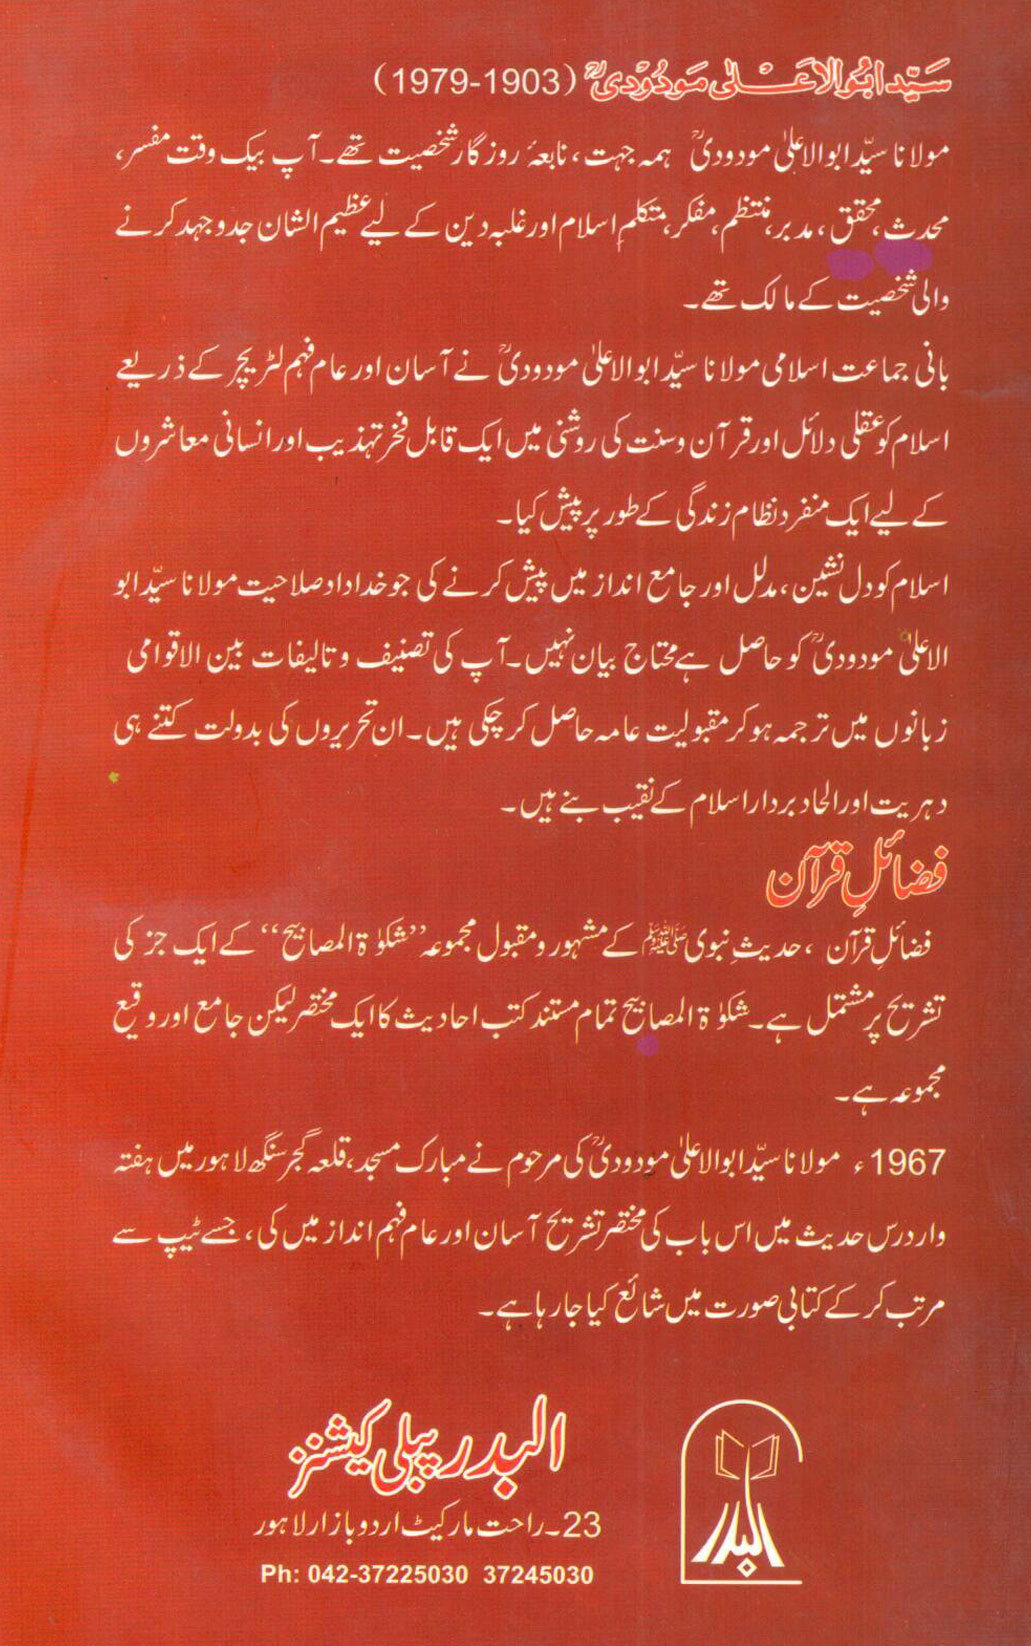 سَیّد ابُوالاعَلیٰ مَودُوْدیؒ (1903-1979)
مولانا سیّد ابوالاعلیٰ مودودیؒ ہمہ جہت، نابغۂ روزگار شخصیت تھے۔ آپ بیک وقت مفسر،
محدث، محقق، مدبر، منتظم، مفکر، متکلمِ اسلام اور غلبہ دین کے لیے عظیم الشان جدوجہد کرنے
والی شخصیت کے مالک تھے۔
بانی جماعت اسلامی مولانا سیّد ابوالاعلیٰ مودودیؒ نے آسان اور عام فہم لٹریچر کے ذریعے
اسلام کو عقلی دلائل اور قرآن وسنت کی روشنی میں ایک قابل فخر تہذیب اور انسانی معاشروں
کے لیے ایک منفرد نظام زندگی کے طور پر پیش کیا۔
اسلام کو دل نشین، مدلل اور جامع انداز میں پیش کرنے کی جو خداداد صلاحیت مولانا سیّد ابو
الاعلیٰ مودودیؒ کو حاصل ہے محتاج بیان نہیں۔ آپ کی تصنیف و تالیفات بین الاقوامی
زبانوں میں ترجمہ ہو کر مقبولیت عامہ حاصل کر چکی ہیں۔ ان تحریروں کی بدولت کتنے ہی
دہریت اور الحاد بردار اسلام کے نقیب بنے ہیں۔
فضائلِ قرآن
فضائلِ قرآن ، حدیثِ نبوی ﷺ کے مشہور و مقبول مجموعہ ”مشکوٰۃ المصابیح“ کے ایک جز کی
تشریح پر مشتمل ہے۔ مشکوٰۃ المصابیح تمام مستند کتب احادیث کا ایک مختصر لیکن جامع اور وقیع
مجموعہ ہے۔
1967ء مولانا سیّد ابوالاعلیٰ مودودیؒ کی مرحوم نے مبارک مسجد، قلعہ گجر سنگھ لاہور میں ہفتہ
وار درس حدیث میں اس باب کی مختصر تشریح آسان اور عام فہم انداز میں کی، جسے ٹیپ سے
مرتب کر کے کتابی صورت میں شائع کیا جا رہا ہے۔
البدر پبلی کیشنز
23۔ راحت مارکیٹ اردو بازار لاہور
Ph: 042-37225030 37245030
البدر